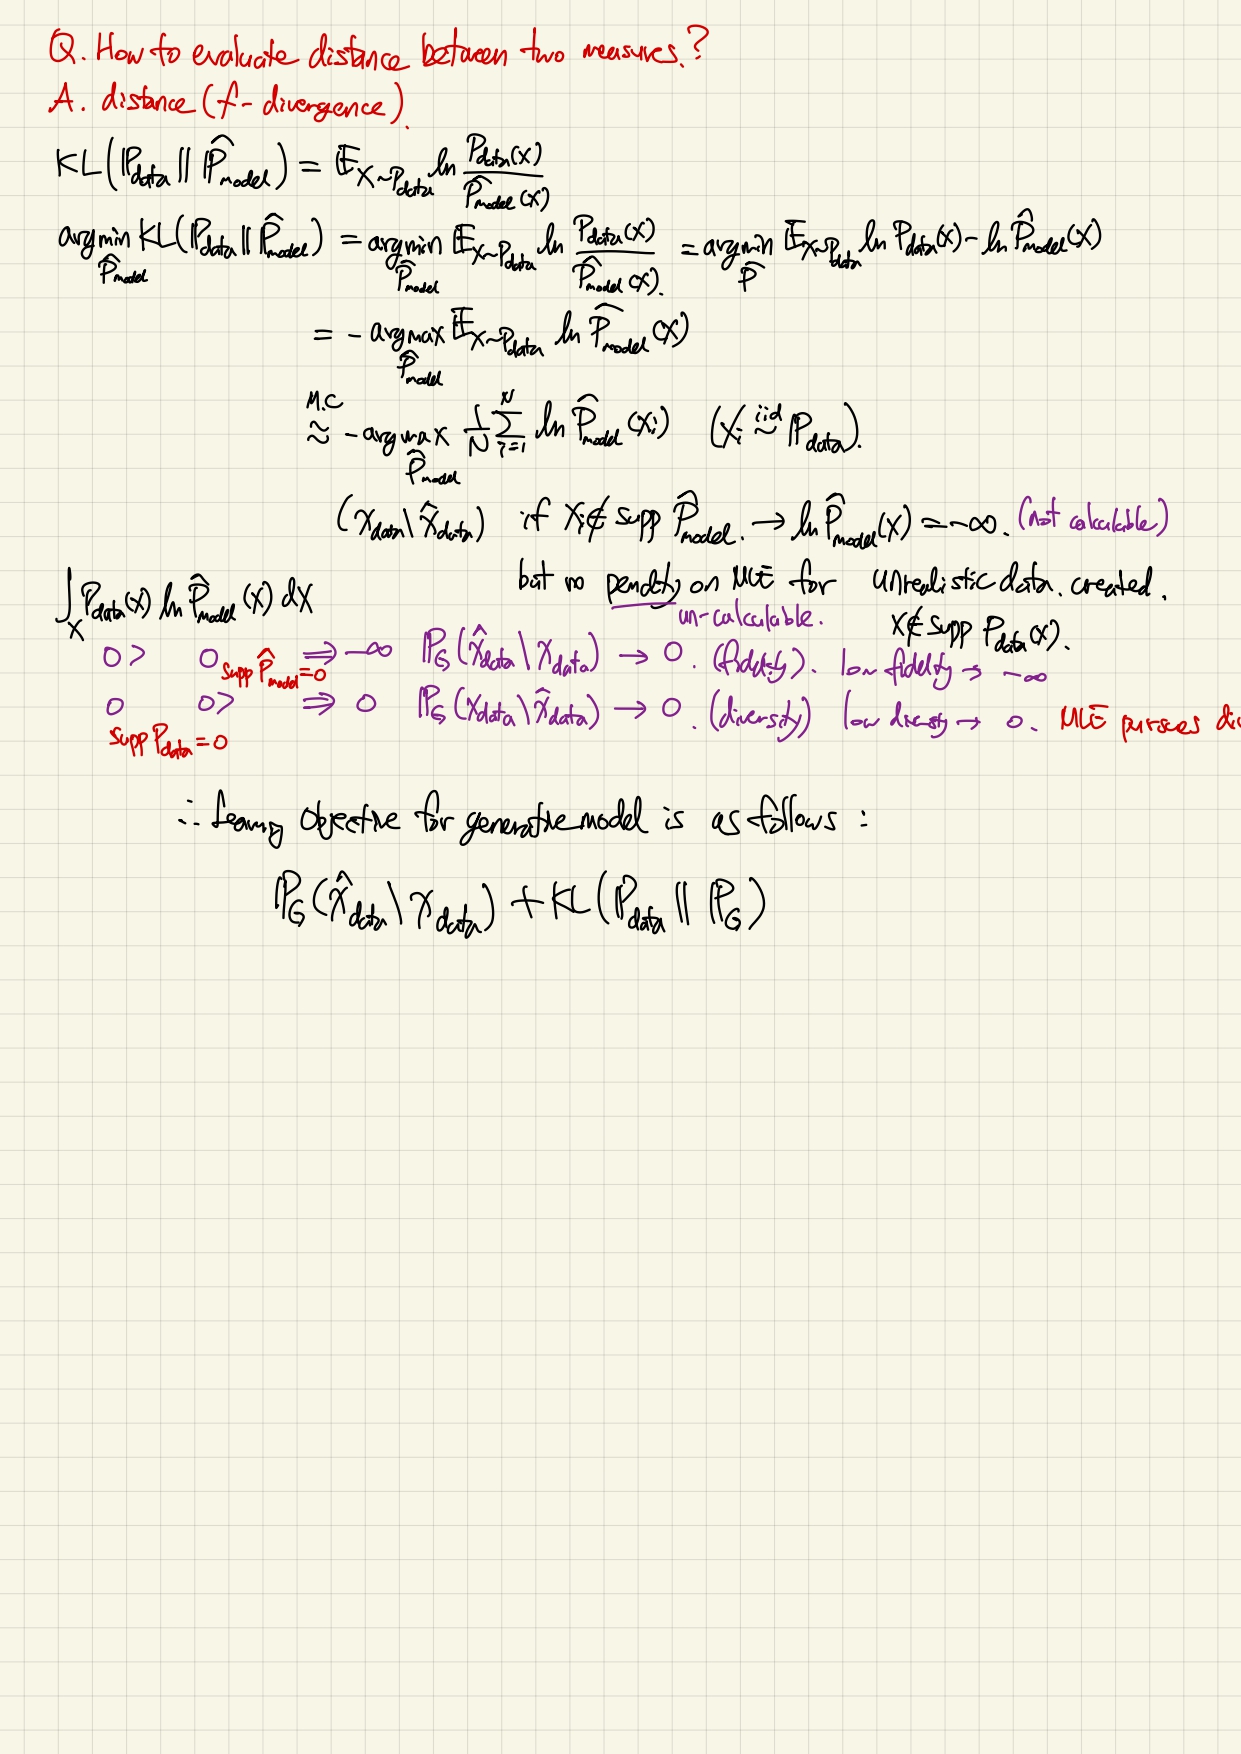 Q. How to evaluate distance between two measures.?
A. distance (f-divergence).
KL(ℙ_data || ℙ̂_model) = 𝔼_{X~P_data} ln P_data(x) / P̂_model(x)
argmin_{P̂_model} KL(ℙ_data || ℙ̂_model) = argmin_{P̂_model} 𝔼_{X~P_data} ln P_data(x) / P̂_model(x). = argmin_{P̂} 𝔼_{X~P_data} ln P_data(x) - ln P̂_model(x)
= - argmax_{P̂_model} 𝔼_{X~P_data} ln P̂_model(x)
M.C ≈ - argmax_{P̂_model} 1/N Σ_{i=1}^{N} ln P̂_model(x_i) (x_i iid ~ ℙ_data).
(χ_data \ χ̂_data) if x_i ∉ supp P̂_model. → ln P̂_model(x) = -∞. (not calculable)
but no penalty on MLE for unrealistic data. created.
∫_X P_data(x) ln P̂_model(x) dx
un-calculable. x ∉ supp P_data(x).
0> 0 supp P̂_model = 0 ⇒ -∞ ℙ_G(χ̂_data \ χ_data) → 0. (fidelity). low fidelity → -∞
0 0> ⇒ 0 ℙ_G(χ_data \ χ̂_data) → 0. (diversity) low diversity → 0. MLE pursues di
supp P_data = 0
∴ Learning objective for generative model is as follows :
ℙ_G(χ̂_data \ χ_data) + KL(ℙ_data || ℙ_G)